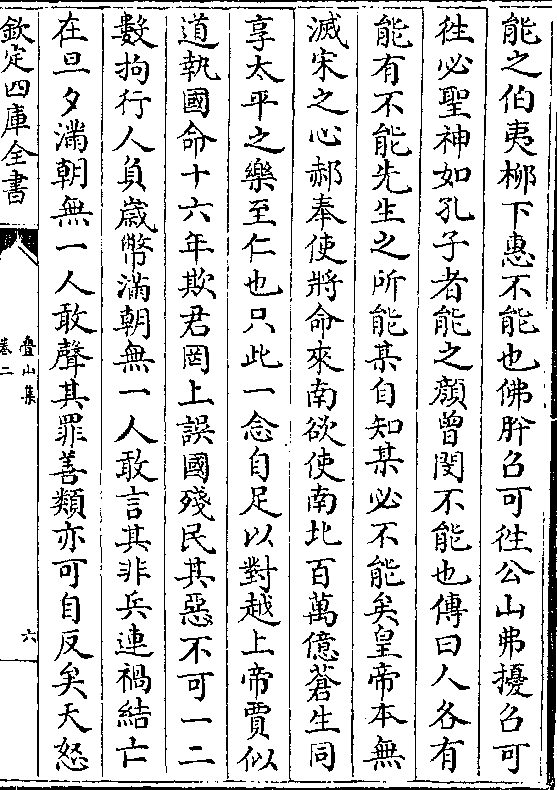 能之伯夷桺下惠不能也佛肸召可徃公山弗擾召可
徃必聖神如孔子者能之顔曾閔不能也傳曰人各有
能有不能先生之所能某自知某必不能矣皇帝本無
滅宋之心郝奉使將命來南欲使南北百萬億蒼生同
享太平之樂至仁也只此一念自足以對越上帝賈似
道執國命十六年欺君罔上誤國殘民其惡不可一二
數拘行人負歲幣滿朝無一人敢言其非兵連禍結亡
在旦夕滿朝無一人敢聲其罪善類亦可自反矣天怒
欽定四庫全書
疊山集
卷二
六